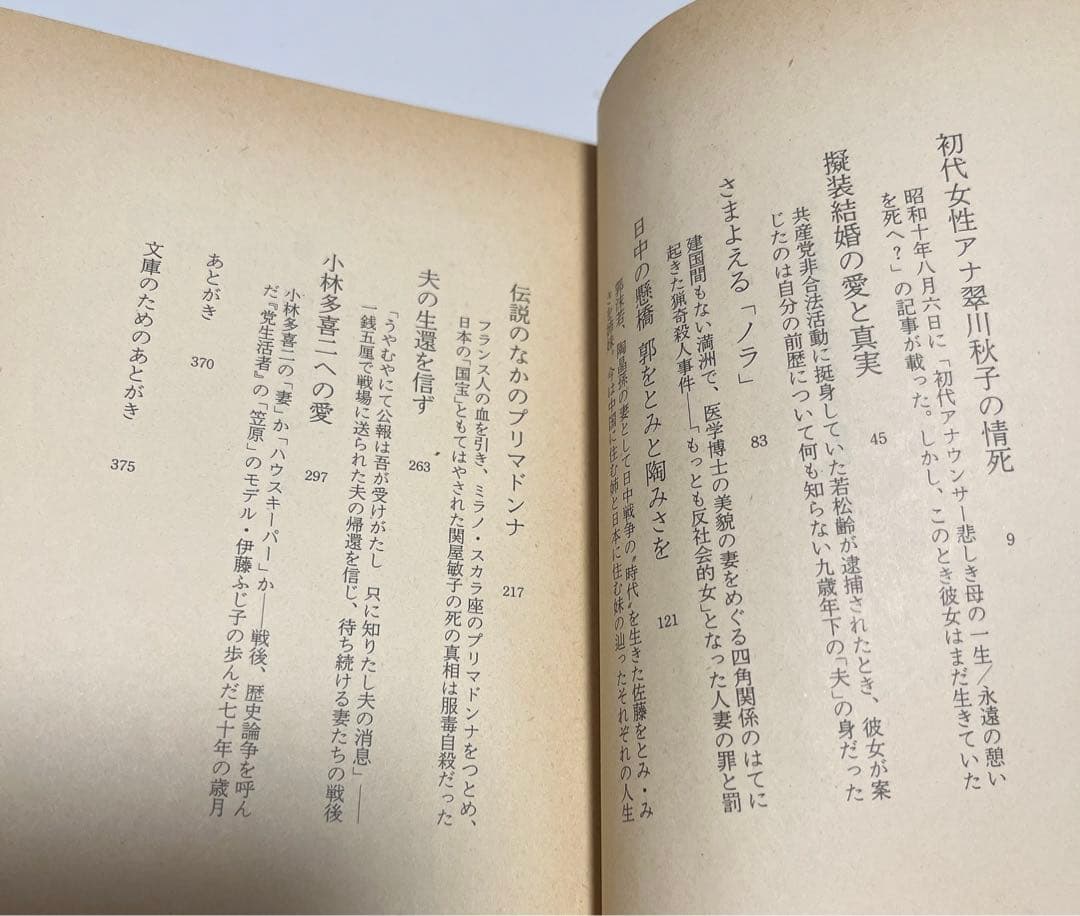 初代女性アナ 翠川秋子の情死
9
昭和十年八月六日に「初代アナウンサー悲しき母の一生/永遠の憩い
を死へ?」の記事が載った。しかし、このとき彼女はまだ生きていた
擬装結婚の愛と真実
45
共産党非合法活動に挺身していた若松齢が逮捕されたとき、彼女が案
じたのは自分の前歴について何も知らない九歳年下の「夫」の身だった
さまよえる「ノラ」
83
建国間もない満洲で、医学博士の美貌の妻をめぐる四角関係のはてに
起きた猟奇殺人事件――「もっとも反社会的女」となった人妻の罪と罰
日中の懸橋 郭をとみと陶みさを
121
郭沫若、陶晶孫の妻として日中戦争の〝時代〟を生きた佐藤をとみ・み
さを姉妹。今は中国に住む姉と日本に住む妹の辿ったそれぞれの人生
伝説のなかのプリマドンナ
217
フランス人の血を引き、ミラノ・スカラ座のプリマドンナをつとめ、
日本の「国宝」ともてはやされた関屋敏子の死の真相は服毒自殺だった
夫の生還を信ず
263
「うやむやにて公報は吾が受けがたし 只に知りたし夫の消息」――
一銭五厘で戦場に送られた夫の帰還を信じ、待ち続ける妻たちの戦後
小林多喜二への愛
297
小林多喜二の「妻」か「ハウスキーパー」か――戦後、歴史論争を呼ん
だ『党生活者』の「笠原」のモデル・伊藤ふじ子の歩んだ七十年の歳月
あとがき
370
文庫のためのあとがき
375